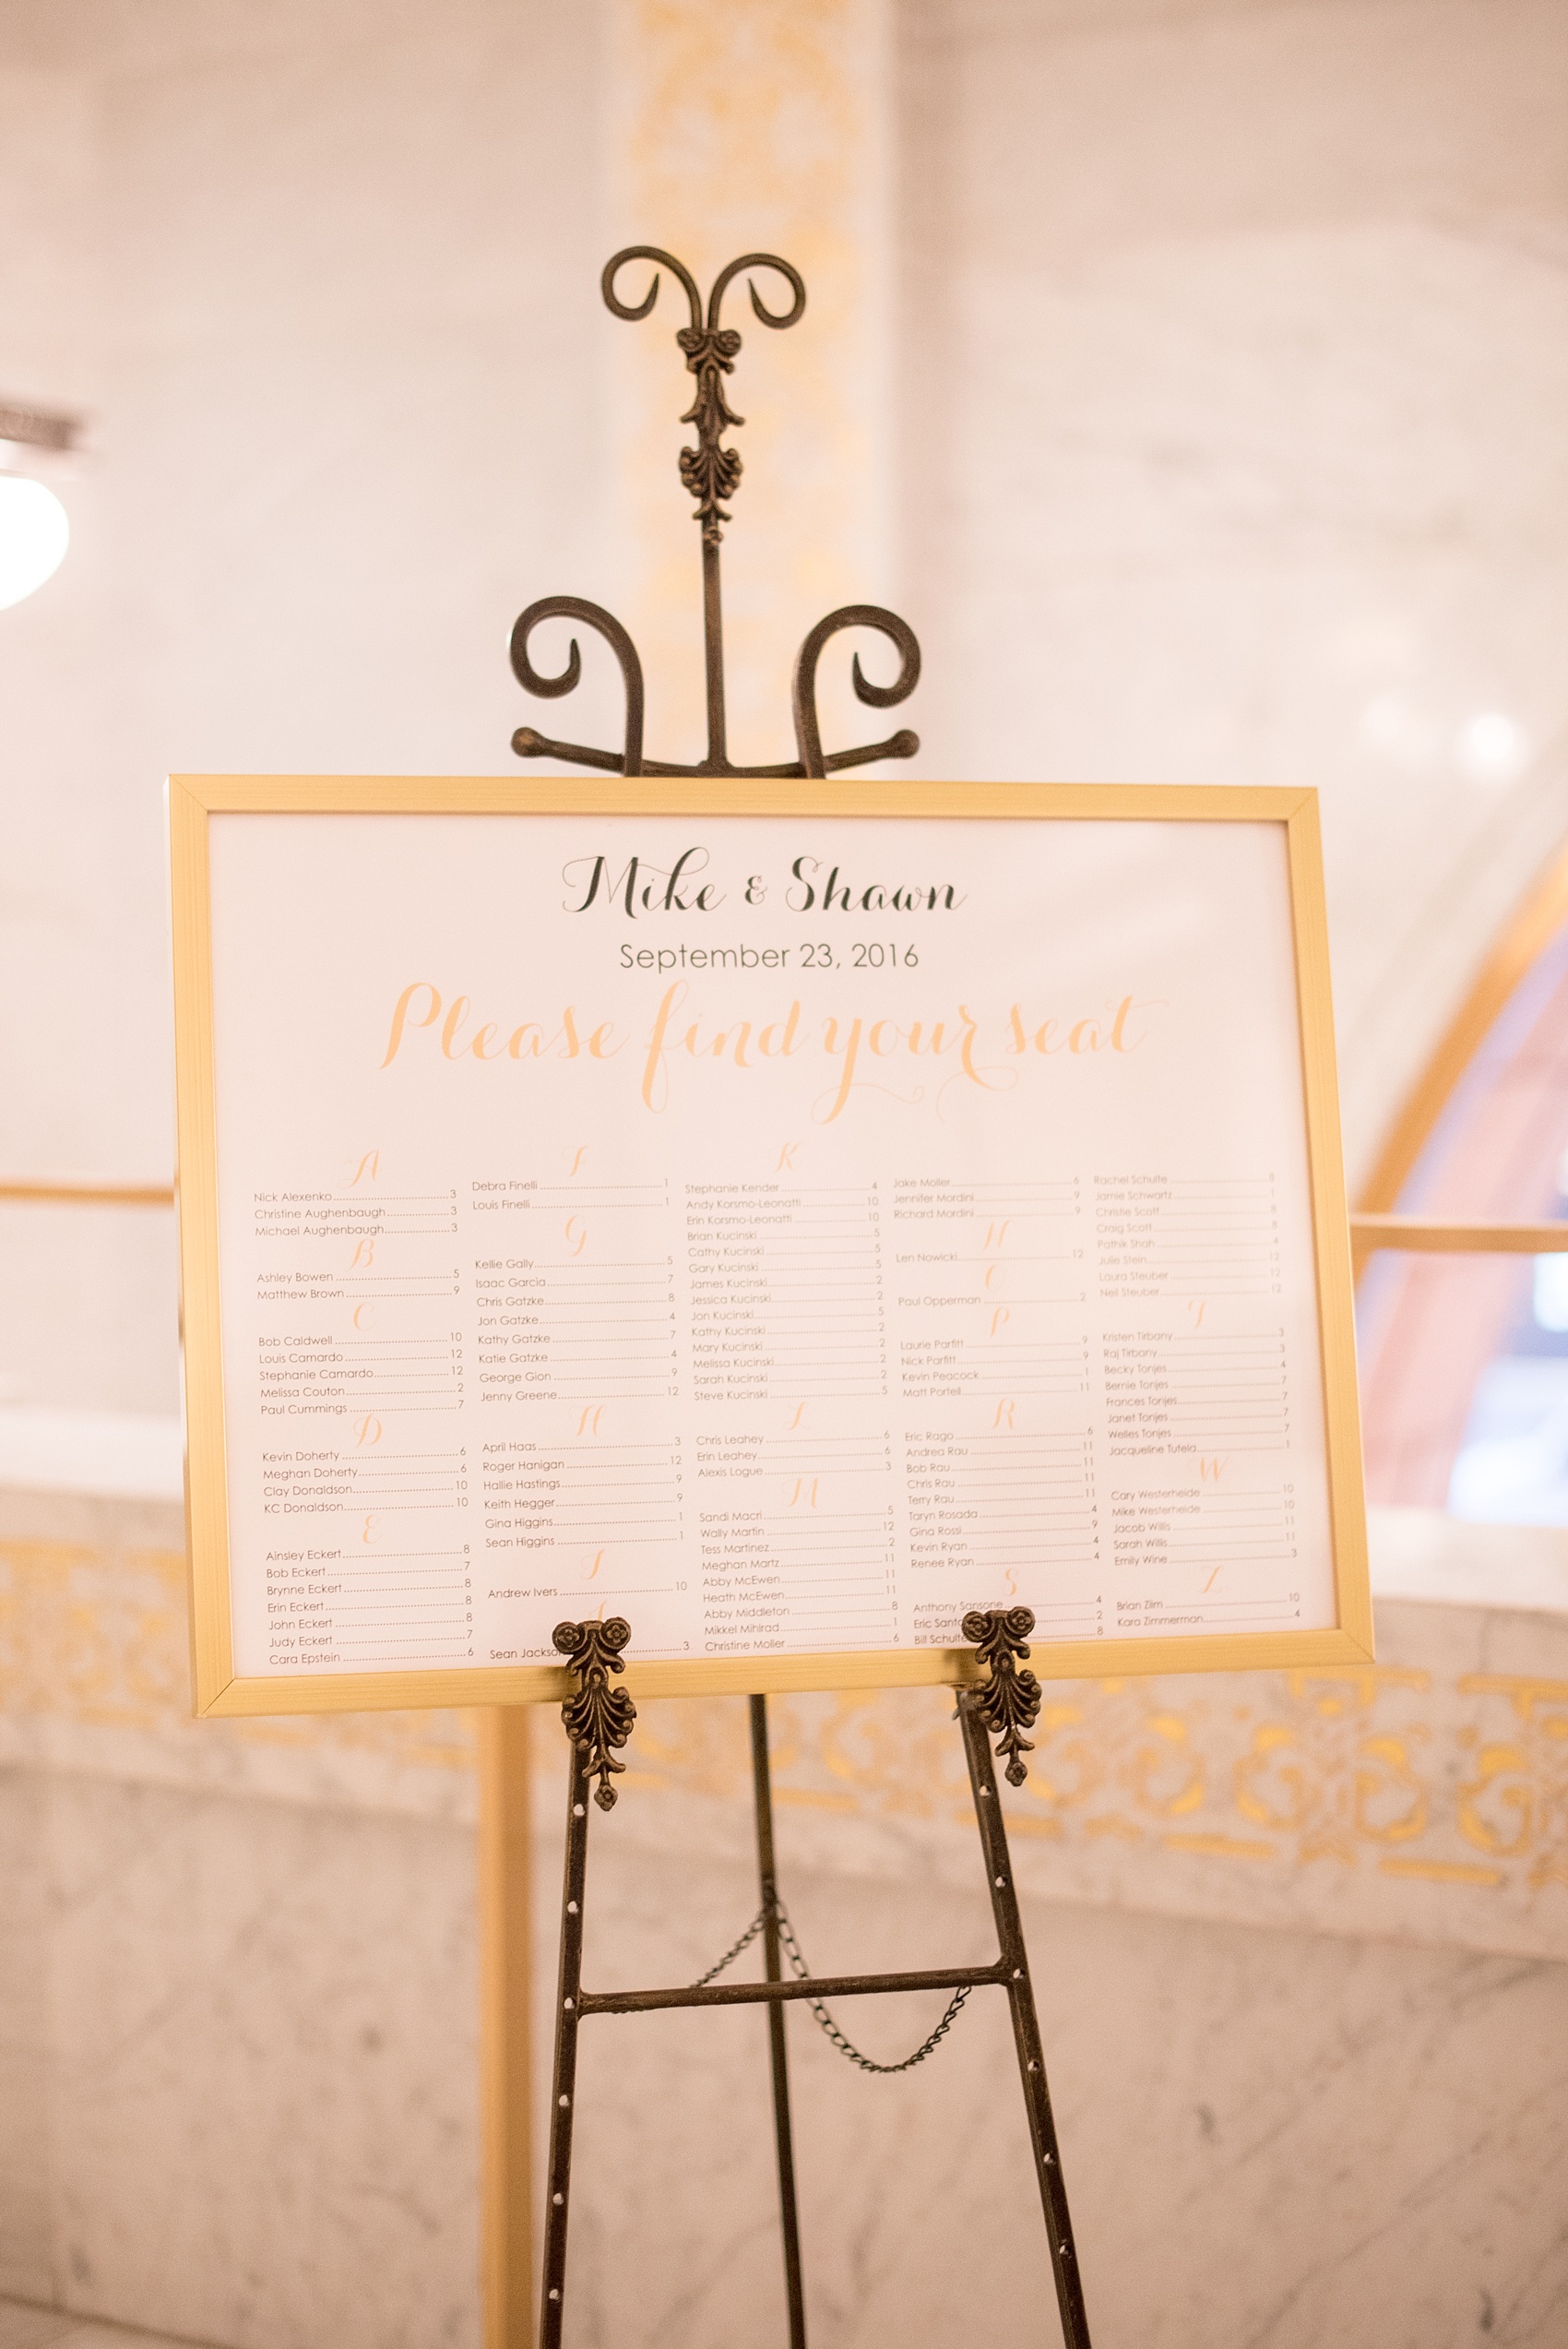 Mike & Shawn
September 23, 2016
Please find your seat
A
Nick Alexenko 3
Christine Aughenbaugh 3
Michael Aughenbaugh 3
B
Ashley Bowen 5
Matthew Brown 9
C
Bob Caldwell 10
Louis Camardo 12
Stephanie Camardo 12
Melissa Couton 2
Paul Cummings 7
D
Kevin Doherty 6
Meghan Doherty 6
Clay Donaldson 10
KC Donaldson 10
E
Ainsley Eckert 8
Bob Eckert 7
Brynne Eckert 8
Erin Eckert 8
John Eckert 8
Judy Eckert 7
Cara Epstein 6
F
Debra Finelli 1
Louis Finelli 1
G
Kellie Gally 5
Isaac Garcia 7
Chris Gatzke 8
Jon Gatzke 4
Kathy Gatzke 7
Katie Gatzke 4
George Gion 9
Jenny Greene 12
H
April Haas 3
Roger Hanigan 12
Hallie Hastings 9
Keith Hegger 9
Gina Higgins 1
Sean Higgins 1
I
Andrew Ivers 10
Sean Jackso 3
K
Stephanie Kender 4
Andy Korsmo-Leonatti 10
Erin Korsmo-Leonatti 10
Brian Kucinski 5
Cathy Kucinski 5
Gary Kucinski 5
James Kucinski 2
Jessica Kucinski 2
Jon Kucinski 5
Kathy Kucinski 2
Mary Kucinski 2
Melissa Kucinski 2
Sarah Kucinski 2
Steve Kucinski 5
L
Chris Leahey 6
Erin Leahey 6
Alexis Logue 3
M
Sandi Macri 5
Wally Martin 12
Tess Martinez 2
Meghan Martz 11
Abby McEwen 11
Heath McEwen 11
Abby Middleton 8
Mikkel Mihlrad 1
Christine Moller 6
Jake Moller 6
Jennifer Mordini 9
Richard Mordini 9
N
Len Nowicki 12
O
Paul Opperman 2
P
Laurie Parfitt 9
Nick Parfitt 9
Kevin Peacock 1
Matt Portell 11
R
Eric Rago 6
Andrea Rau 11
Bob Rau 11
Chris Rau 11
Terry Rau 11
Taryn Rosada 4
Gina Rossi 9
Kevin Ryan 4
Renee Ryan 4
S
Anthony Sansone 4
Eric Sant 2
Bill Schulte 8
Rachel Schulte 8
Jamie Schwartz 1
Christie Scott 8
Craig Scott 8
Pathik Shah 4
Julie Stein 12
Laura Steuber 12
Neil Steuber 12
T
Kristen Tirbany 3
Raj Tirbany 3
Becky Tonjes 4
Bernie Tonjes 7
Frances Tonjes 7
Janet Tonjes 7
Welles Tonjes 7
Jacqueline Tutela 1
W
Cary Westerheide 10
Mike Westerheide 10
Jacob Willis 11
Sarah Willis 11
Emily Wine 3
Z
Brian Zilm 10
Kara Zimmerman 4